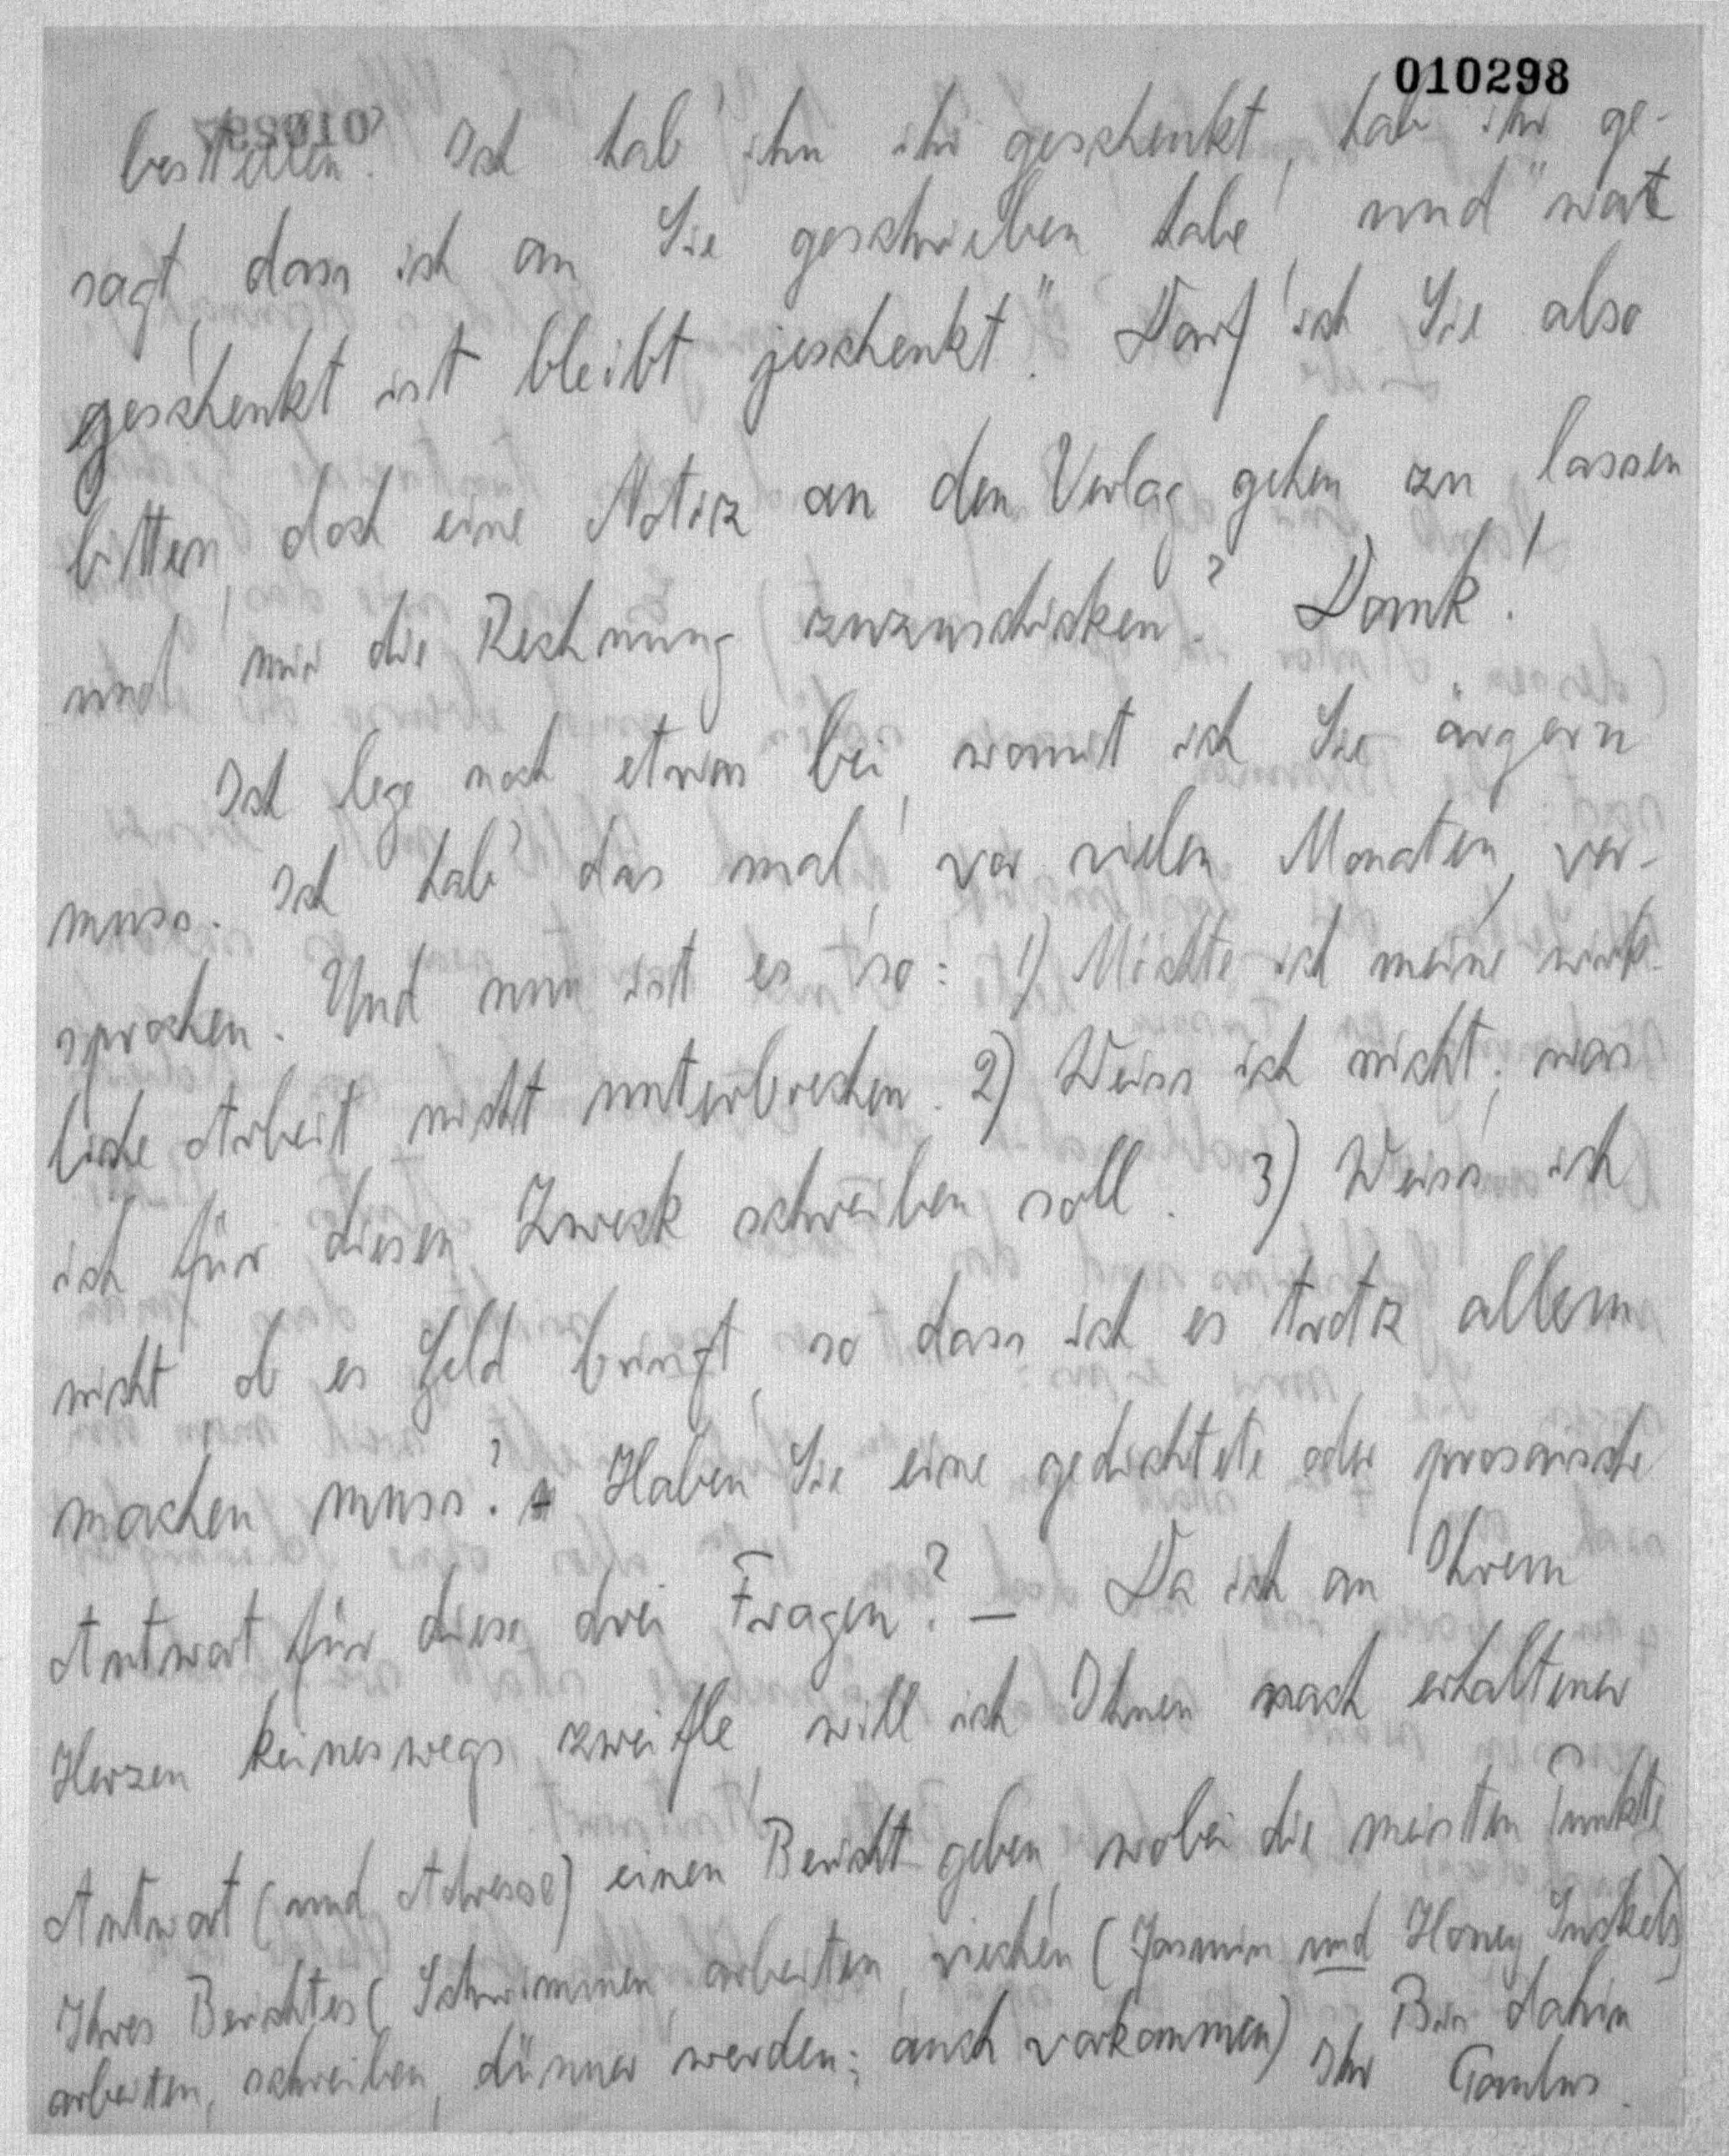 010298
bestellen. Ich hab' ihn ihr geschenkt, hab ihr ge-
sagt, dass ich an Sie geschrieben habe, und "wat
geschenkt ist bleibt jeschenkt." Darf ich Sie also
bitten, doch eine Notiz an den Verlag gehen zu lassen
und mir die Rechnung zuzuschicken? Dank!
Ich lege noch etwas bei, womit ich Sie ärgern
muss. Ich hab' das mal, vor vielen Monaten, ver-
sprochen. Und nun ist es so: 1) Möchte ich meine wirk-
liche Arbeit nicht unterbrechen. 2) Weiss ich nicht, was
ich für diesen Zweck schreiben soll. 3) Weiss ich
nicht ob es Geld bringt, so dass ich es trotz allem
machen muss? Haben Sie eine gedichtete oder prosaische
Antwort für diese drei Fragen? — Da ich an Ihrem
Herzen keineswegs zweifle, will ich Ihnen nach erhaltener
Antwort (und Adresse) einen Bericht geben, wobei die meisten Punkte
Ihres Berichtes (Schwimmen, arbeiten, riechen (Jasmin und Honey Suckels)
arbeiten, schreiben, dünner werden; auch vorkommen). Bis dahin
Ihr